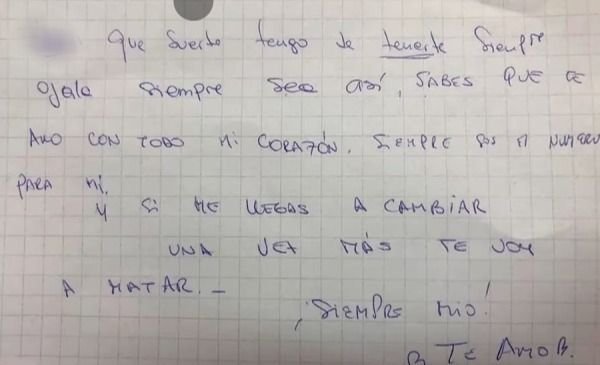 Que suerte tengo de tenerte siempre
ojala siempre sea así, SABES QUE TE
AMO CON TODO MI CORAZÓN. SIEMPRE SOS MI NUMERO
PARA MI.
Y SI ME LLEGAS A CAMBIAR
UNA VEZ MÁS TE VOY
A MATAR. –
¡SIEMPRE MIO!
TE AMO B.